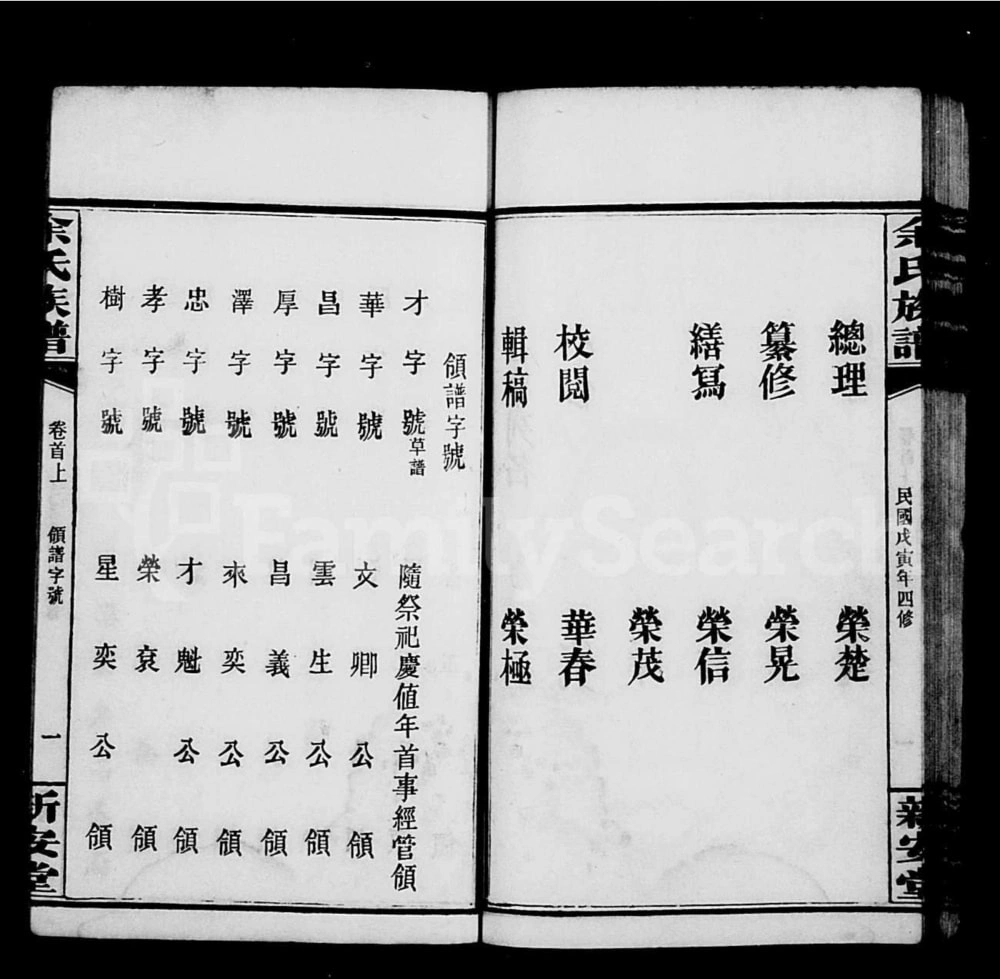 余氏族譜
民國戊寅年四修
新安堂
總理 榮楚
纂修 榮晃
繕寫 榮信
榮茂
校閱 華春
輯稿 榮極
領譜字號
才字號草譜 隨祭祀慶值年首事經管領
華字號 文卿公領
昌字號 雲生公領
厚字號 昌義公領
澤字號 來奕公領
忠字號 才魁公領
孝字號 榮袞領
樹字號 星奕公領
余氏族譜
卷首上 領譜字號 一
新安堂
FamilySearch